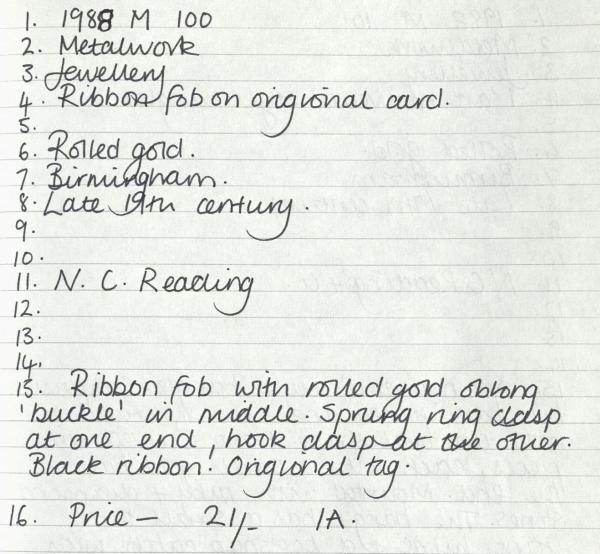 1. 1988 M 100
2. Metalwork
3. Jewellery
4. Ribbon fob on origional card.
5.
6. Rolled gold.
7. Birmingham.
8. Late 19th century.
9.
10.
11. N. C. Reading
12.
13.
14.
15. Ribbon fob with rolled gold oblong
'buckle' in middle. Sprung ring clasp
at one end, hook clasp at the other.
Black ribbon. Origional tag.
16. Price — 21/- 1A.